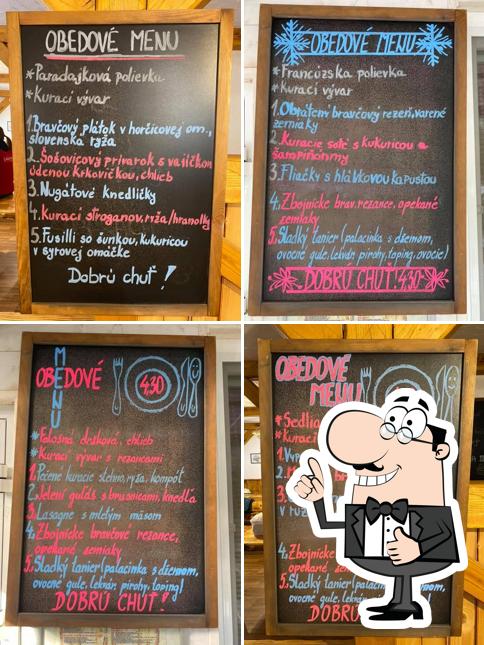 OBEDOVÉ MENU
*Paradajková polievka
*Kurací vývar
1.Bravčový plátok v horčicovej om.,
slovenská ryža
2.Šošovicový prívarok s vajíčkom
údenou krkovičkou, chlieb
3.Nugátové knedlíčky
4.kurací stroganov,ryža/hranolky
5.Fusilli so šunkou,kukuricou
v syrovej omáčke
Dobrú chuť!
OBEDOVÉ MENU
*Francúzska polievka
*Kurací vývar
1.Obrátený bravčový rezeň,varené
zemiaky
2.Kuracie soté s kukuricou a
šampiňónmy
3.Fliačky s hlávkovou kapustou
4.Zbojnícke brav.rezance, opekané
zemiaky
5.Sladký tanier(palacinka s džemom,
ovocné gule,lekvár. pirohy,toping, ovocie)
DOBRÚ CHUŤ! 4,30
MENU
OBEDOVÉ
4,30
*Falošná držková, chlieb
*Kurací vývar s rezancami
1.Pečené kuracie stehno,ryža, kompót
2.Jelení guláš s brusnicami, knedľa
3.Lasagne s mletým mäsom
4.Zbojnícke bravčové rezance,
opekané zemiaky
5.Sladký tanier(palacinka s džemom,
ovocné gule, lekvár. pirohy,toping)
DOBRÚ CHUŤ!
OBEDOVÉ
MENU
*Kurací
1.
2.
3.
4.Zbojnícke
opekané
5.Sladký tanier(
ovocné gule, lekvár.
DOBRÚ